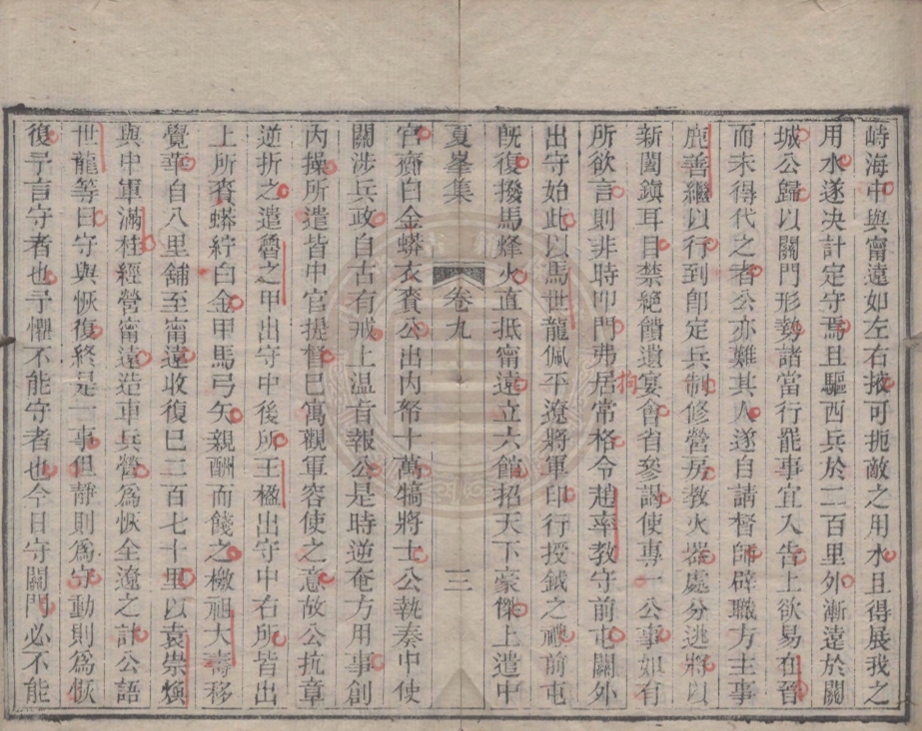 峙海中與甯遠如左右掖可扼敵之用水且得展我之
用水遂决計定守焉且驅西兵於二百里外漸遠於關
城公歸以關門形勢諸當行罷事宜入告上欲易在晉
而未得代之者公亦難其人遂自請督師辟職方主事
鹿善繼以行到卽定兵制修營房教火器處分逃將以
新闔鎭耳目禁絕餽遺宴會省參謁使專一公事如有
所欲言則非時叩門弗居常格令趙率教守前屯關外
拘
出守始此以馬世龍佩平遼將軍印行授鉞之禮前屯
旣復撥馬烽火直抵甯遠立六館招天下豪傑上遣中
夏峯集 卷九 三
官齎白金蟒衣賚公出內帑十萬犒將士公執奏中使
關涉兵政自古有戒上温旨報公是時逆奄方用事創
內操所遣皆中官提督巳寓觀軍容使之意故公抗章
逆折之遣魯之甲出守中後所王楹出守中右所皆出
上所賚蟒紵白金甲馬弓矢親酬而餞之檄祖大壽移
覺華自八里舖至甯遠收復巳二百七十里以袁崇煥
與中軍滿桂經營甯遠造車兵營爲恢全遼之計公語
世龍等曰守與恢復終是一事但靜則爲守動則爲恢
復予言守者也予懼不能守者也今日守關門必不能